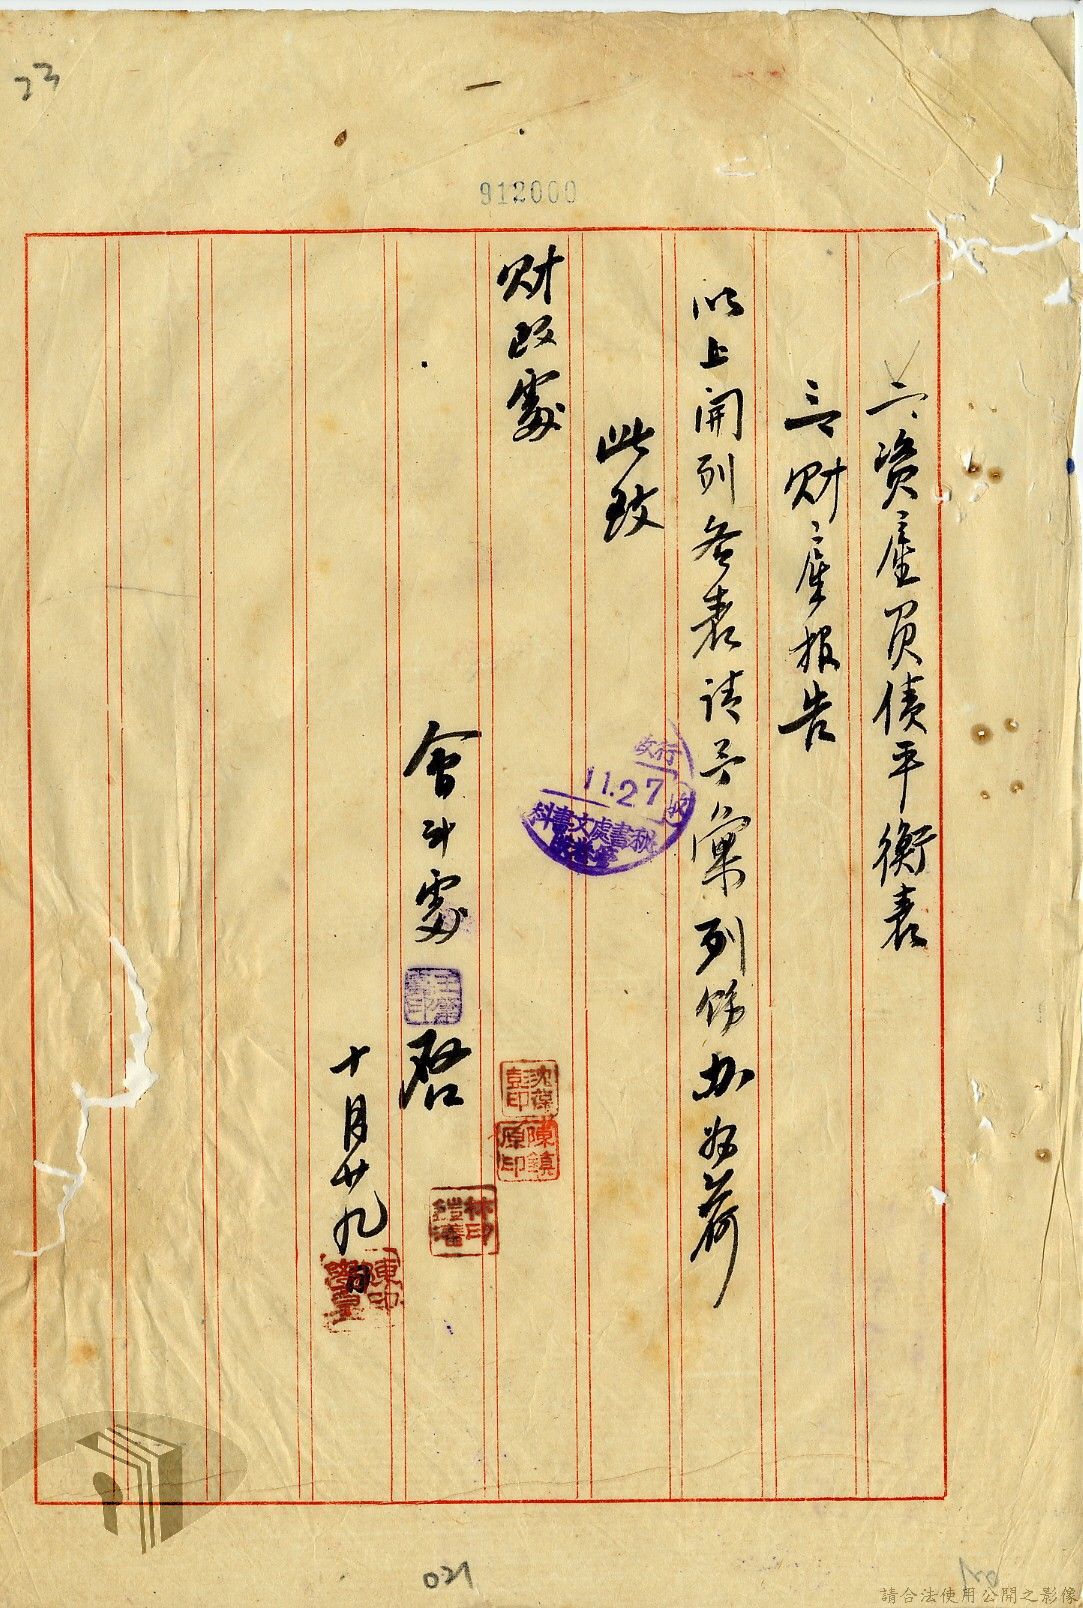 23
912000
二、資產負債平衡表
三、財產報告
以上開列各表請予彙列飭办为荷
此致
財政處
會計處
啓
十月廿九日
行政
收
11.27
秘書處文書科
沈葆彭印
陳鎮原印
林印鎧潘
陳印
021
請合法使用公開之影像